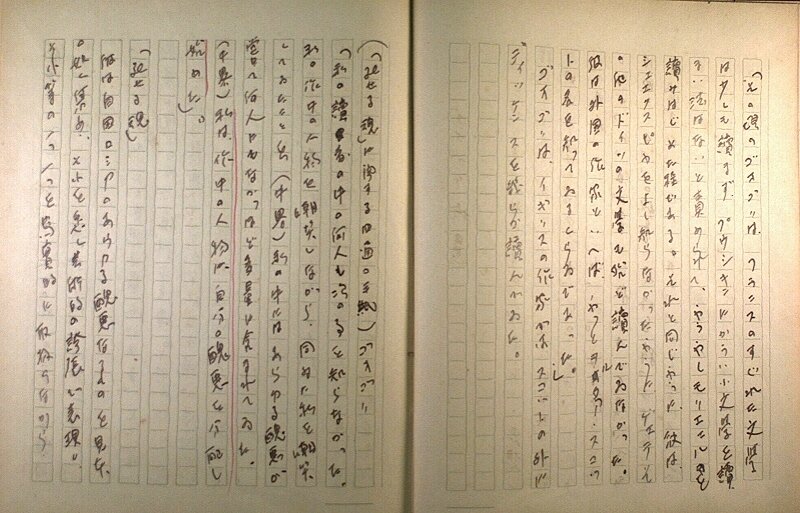 「その頃のゴオゴリは、フランスのすぐれた文学
は少しも讀まず、プウシキンにかういふ文学を讀
まい法はないと責められて、やうやくモリエールを
讀みはじめた程である。それと同じやうに、彼は、
シェエクスピアをよく知らなかったやうに、ゲエテも
の他のドイツの文学も殆ど讀んでゐなかった。
彼は外國の作家といへば、やっとヲルター・スコッ
トの名を知ってゐるくらゐだった。」
ゴオゴリは、イギリスの作家では、スコットの外に
ディッケンスを幾らか讀んでゐた。
(「死せる魂」に関する四通の手紙) ゴオゴリ
「私の讀者の中の何人も次の事を知らなかった。
私の作中の人物を嘲笑しながら、同時に私を嘲笑
してゐたことを、(中畧) 私の中にはあらゆる醜悪が
曾て何人にもなかったほど多量に含まれてゐた。
(中畧) 私は、作中の人物に自分の醜悪を分配し
始めた。」
「死せる魂」
彼は自国ロシアのあらゆる醜悪なるものを見た、
の如く 集め、それを 藝術的の誇張で表現し、
その一つ一つを写真的に